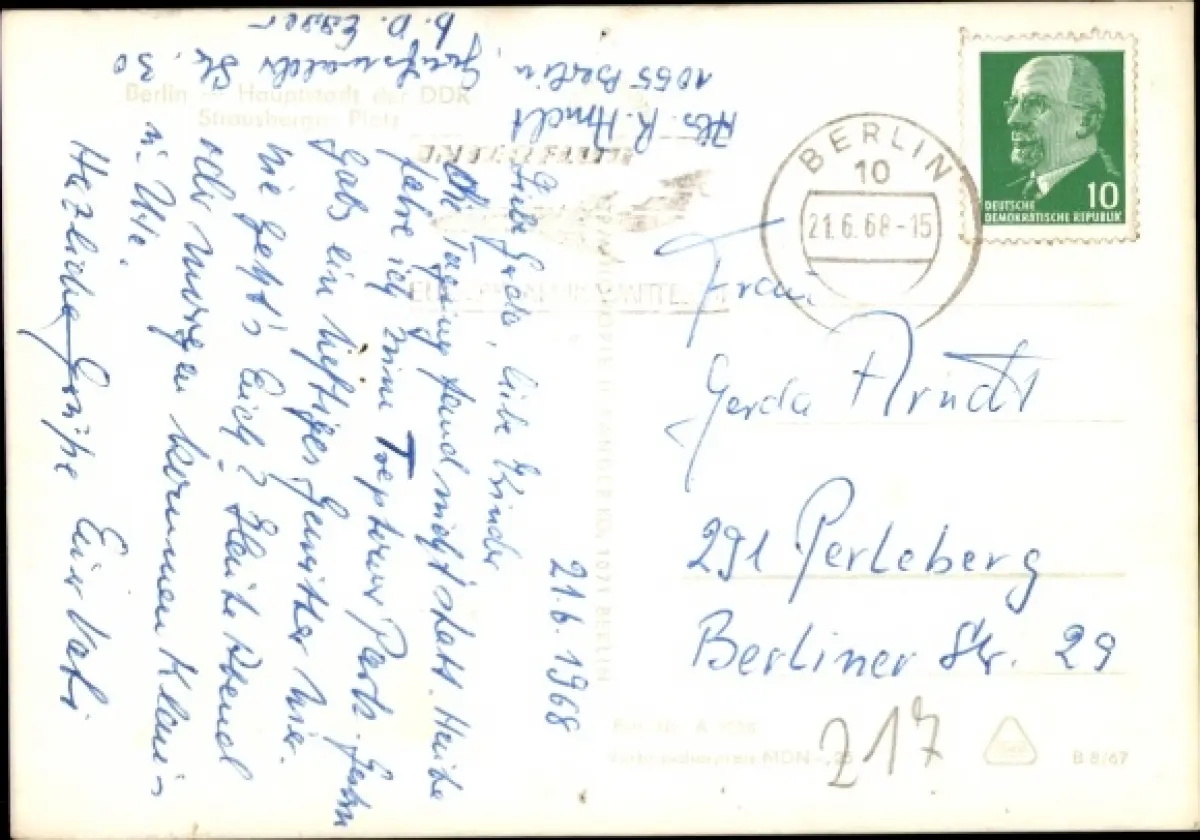 Berlin – Hauptstadt der DDR
Strausberger Platz
Abs. R. Arndt
1055 Berlin,
Greifswalder Str. 30
b. D. Esser
21.6.1968
Liebe Gerda, liebe Kinder
Tagung fand nicht statt. Heute
fahre ich zum Treptower Park. Gestern
gab's ein heftiges Gewitter hier.
Wie geht's Euch? Heute Abend
oder morgen kommen Klaus
u. Ute.
Herzliche Grüße Euer Vati
BERLIN
10
21.6.68-15
10
DEUTSCHE
DEMOKRATISCHE REPUBLIK
Frau
Gerda Arndt
291 Perleberg
Berliner Str. 29
217
Verbraucherpreis MDN -,25
B 8/67